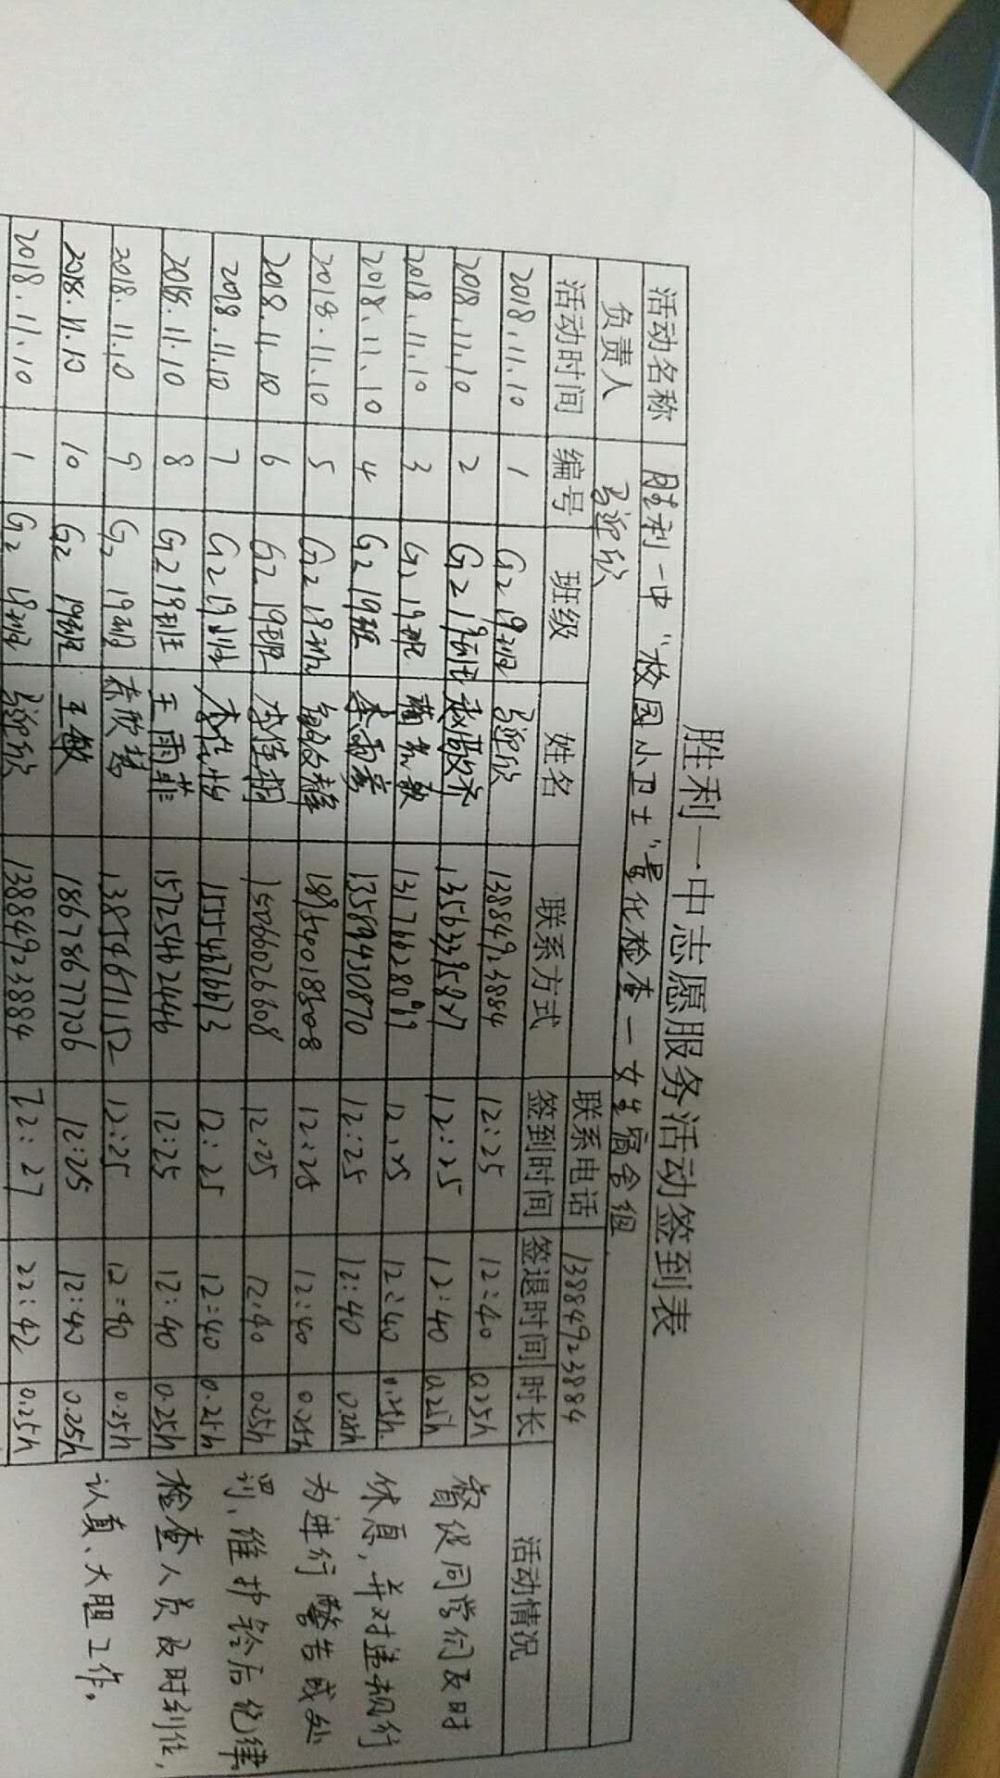 胜利一中志愿服务活动签到表
活动名称 胜利一中"校园小卫士"量化检查—女生宿舍组
负责人 马迎欣 联系电话 13884923884
活动时间 编号 班级 姓名 联系方式 签到时间 签退时间 时长 活动情况
2018.11.10 1 G2 19班 马迎欣 13884923884 12:25 12:40 0.25h
2018.11.10 2 G2 19班 赵敬齐 12:25 12:40 0.25h
2018.11.10 3 G2 19班 12:25 12:40 0.25h
2018.11.10 4 G2 19班 李雨蒙 13589430870 12:25 12:40 0.25h
2018.11.10 5 G2 19班 12:25 12:40 0.25h
2018.11.10 6 G2 19班 李佳桐 15066026608 12:25 12:40 0.25h
2018.11.10 7 G2 19班 12:25 12:40 0.25h
2018.11.10 8 G2 19班 王雨菲 15725462446 12:25 12:40 0.25h
2018.11.10 9 G2 19班 13854671152 12:25 12:40 0.25h
2018.11.10 10 G2 19班 王敏 18678677706 12:25 12:40 0.25h
2018.11.10 1 G2 19班 马迎欣 13884923884 22:27 22:42 0.25h
督促同学们及时
休息,并对违规行
为进行警告或处
罚、维护铃后纪律
检查人员及时到位,
认真、大胆工作。